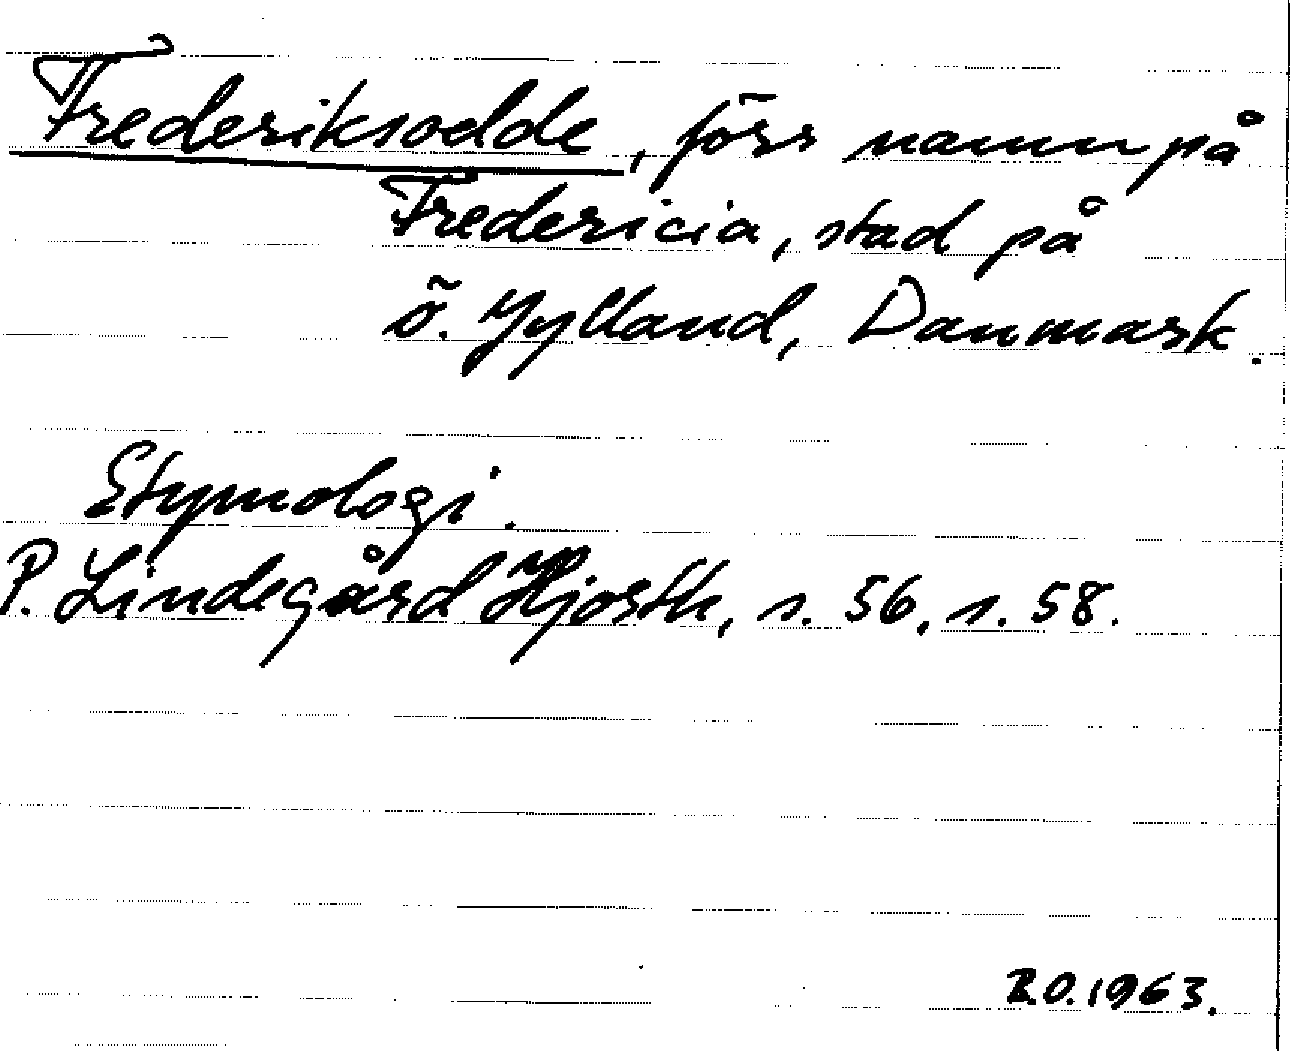 Frederiksodde, förr namn på
Fredericia, stad på
ö. Jylland, Danmark.
Etymologi.
P. Lindegård Hjorth, s. 56, s. 58.
B.O. 1963.